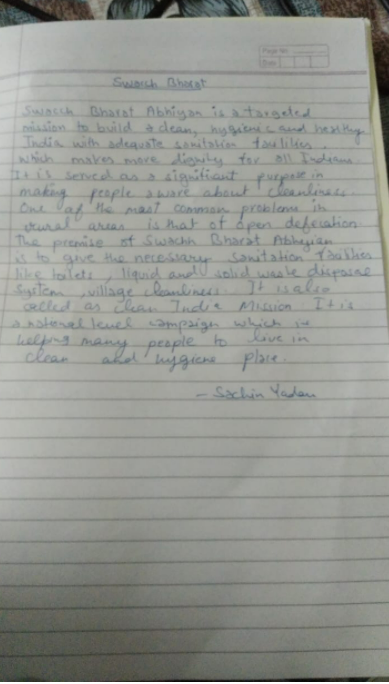 Page No.
Date
Swacch Bharat
Swacch Bharat Abhiyan is a targeted
mission to build a clean, hygienic and healthy
India with adequate sanitation facilities,
which makes more dignity for all Indians.
It is served as a significant purpose in
making people aware about cleanliness.
One of the most common problems in
rural areas is that of open defecation.
The premise of Swachh Bharat Abhiyan
is to give the necessary sanitation facilities
like toilets, liquid and solid waste disposal
system, village cleanliness. It is also
called as clean India Mission It is
a national level campaign which is
helping many people to live in
clean and hygiene place.
- Sachin Yadav